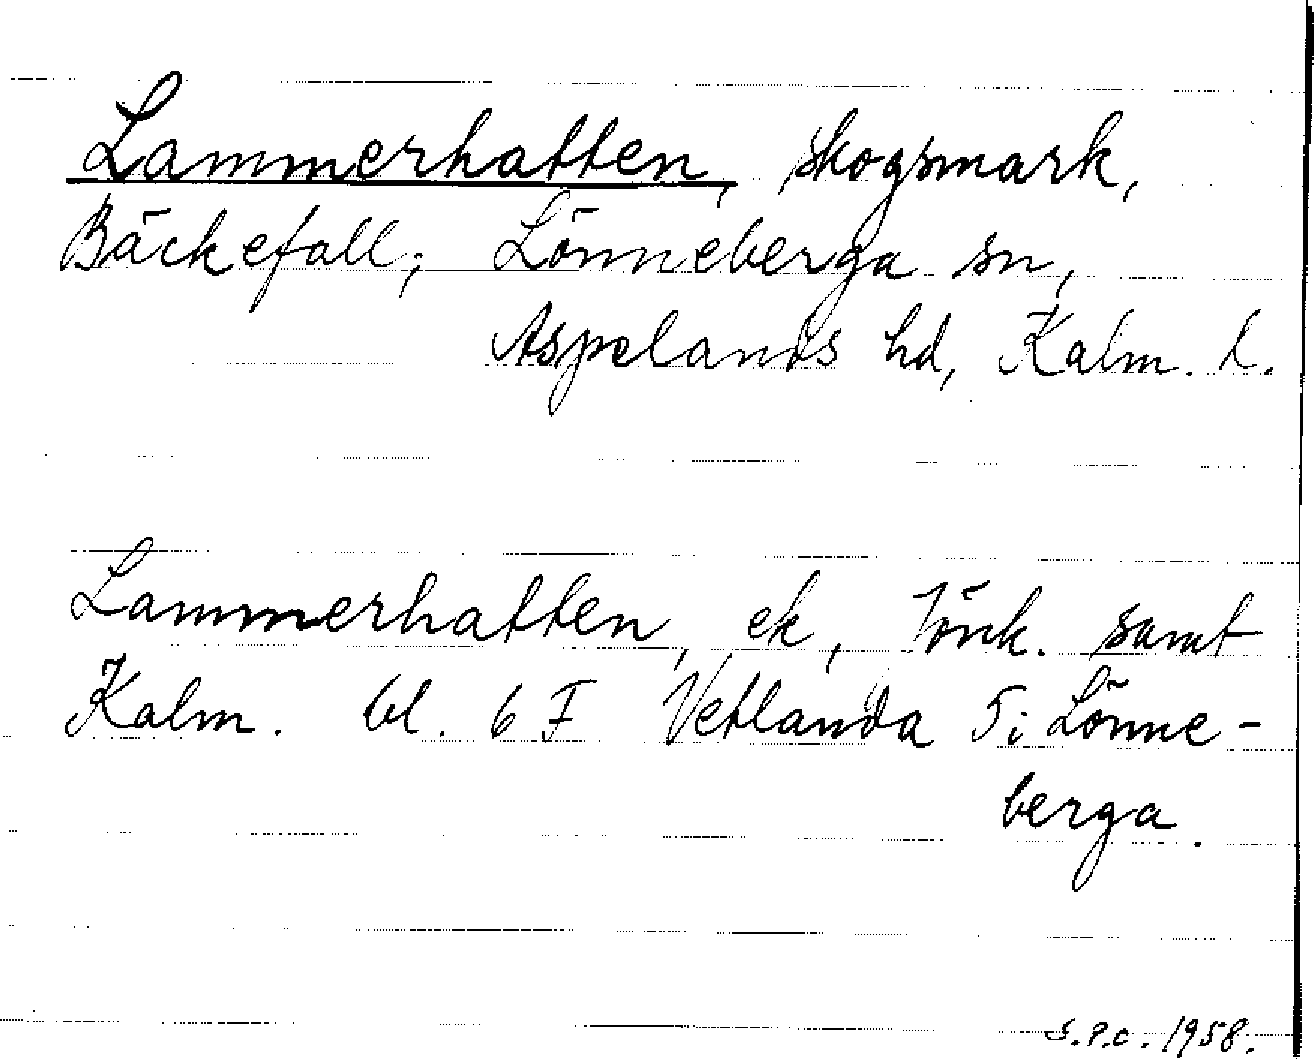 Lammerhatten, skogsmark,
Bäckefall; Lönneberga sn,
Aspelands hd, Kalm. l.
Lammerhatten, ek, Jönk. samt
Kalm. bl. 6 F Vetlanda 5i Lönne-
berga.
S.P.O. 1958.